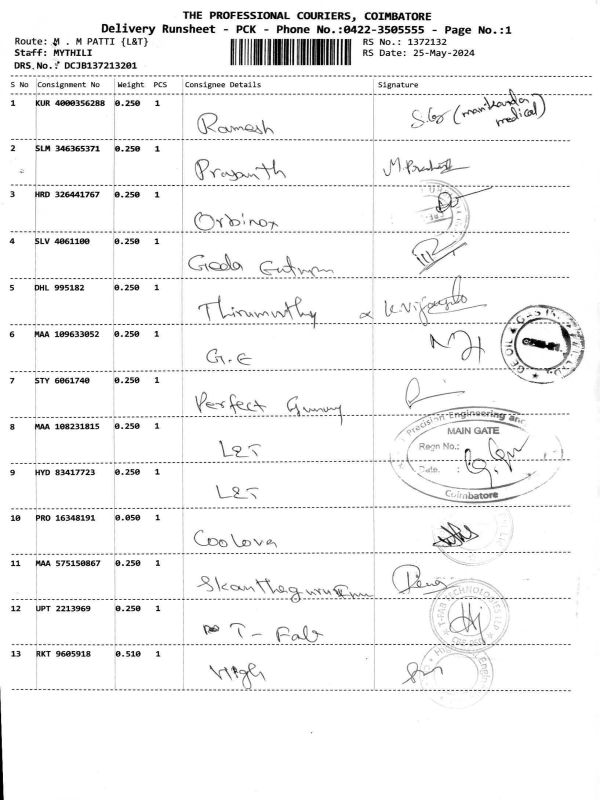 THE PROFESSIONAL COURIERS, COIMBATORE
Delivery Runsheet - PCK - Phone No.:0422-3505555 - Page No.:1
Route: M . M PATTI {L&T} RS No.: 1372132
Staff: MYTHILI RS Date: 25-May-2024
DRS.No.: DCJB137213201
S No Consignment No Weight PCS Consignee Details Signature
1 KUR 4000356288 0.250 1 Ramesh (manikandan medical)
2 SLM 346365371 0.250 1 Prasanth
3 HRD 326441767 0.250 1 Orbinox
4 SLV 4061100 0.250 1 Geda
5 DHL 995182 0.250 1 Thirumurthy
6 MAA 109633052 0.250 1 G.E
GE OIL
7 STY 6061740 0.250 1 Perfect
Precision Engineering and
8 MAA 108231815 0.250 1 L&T MAIN GATE
Regn No.:
Date. :
9 HYD 83417723 0.250 1 L&T
Coimbatore
10 PRO 16348191 0.050 1 Coolova
11 MAA 575150867 0.250 1
12 UPT 2213969 0.250 1 T-Fab
13 RKT 9605918 0.510 1